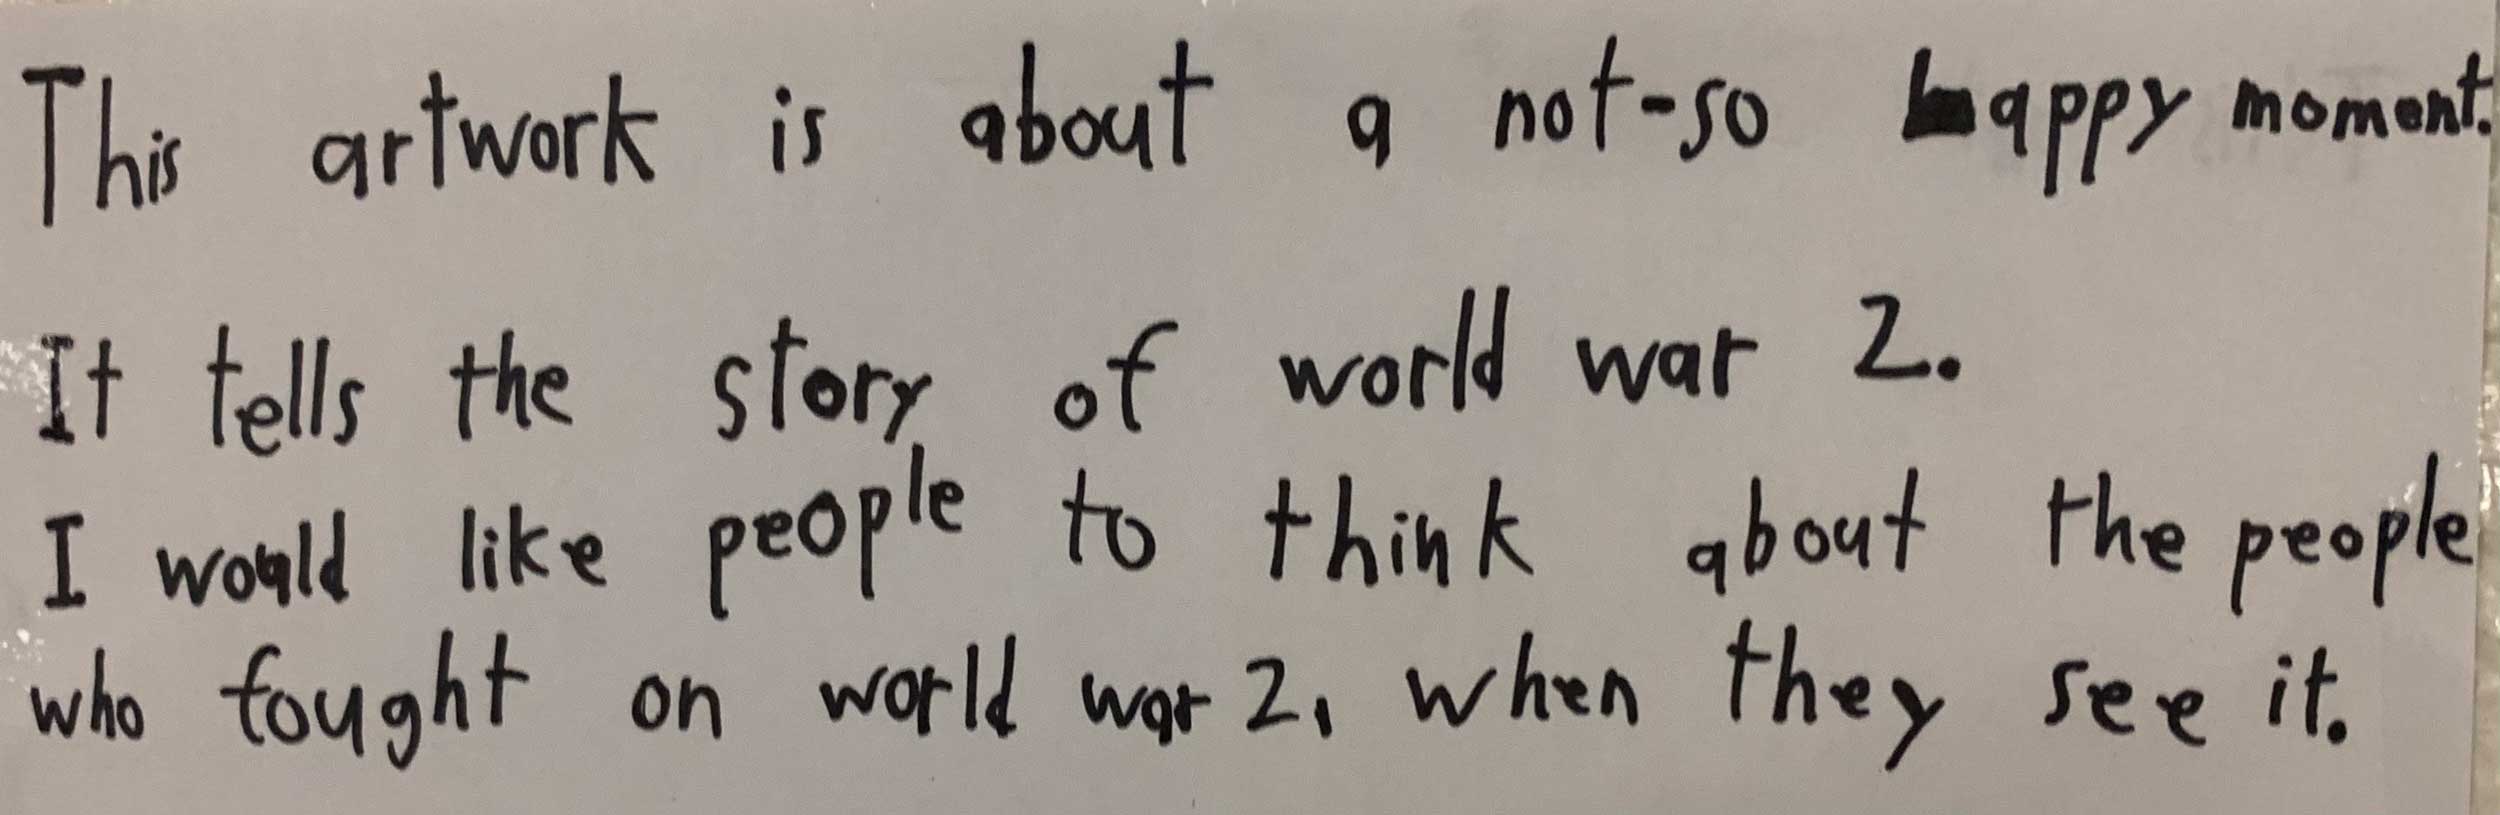 This artwork is about a not-so happy moment.
It tells the story of world war 2.
I would like people to think about the people
who fought on world war 2, when they see it.